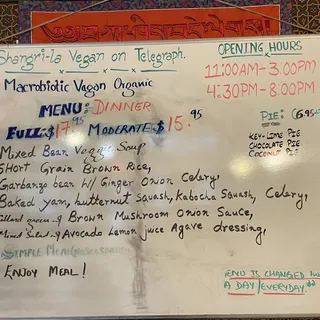 Shangri-la Vegan on Telegraph.
Macrobiotic Vegan Organic
MENU: DINNER
FULL:$17.95 MODERATE:$15.95
Mixed Bean Veggie Soup
Short Grain Brown Rice,
Garbanzo bean W/ Ginger Onion Celery,
Baked yam, butternut Squash, Kabocha Squash, Celery,
Collard green w/ Brown Mushroom Onion Sauce,
Mixed Salad w/ Avocado Lemon juice Agave dressing,
SIMPLE MEAL
ENJOY MEAL!
OPENING HOURS
11:00AM-3:00PM
4:30PM-8:00PM
PIE: (6.95
KEY-LIME PIE
CHOCOLATE PIE
COCONUT PIE
MENU IS CHANGED
A DAY/EVERYDAY